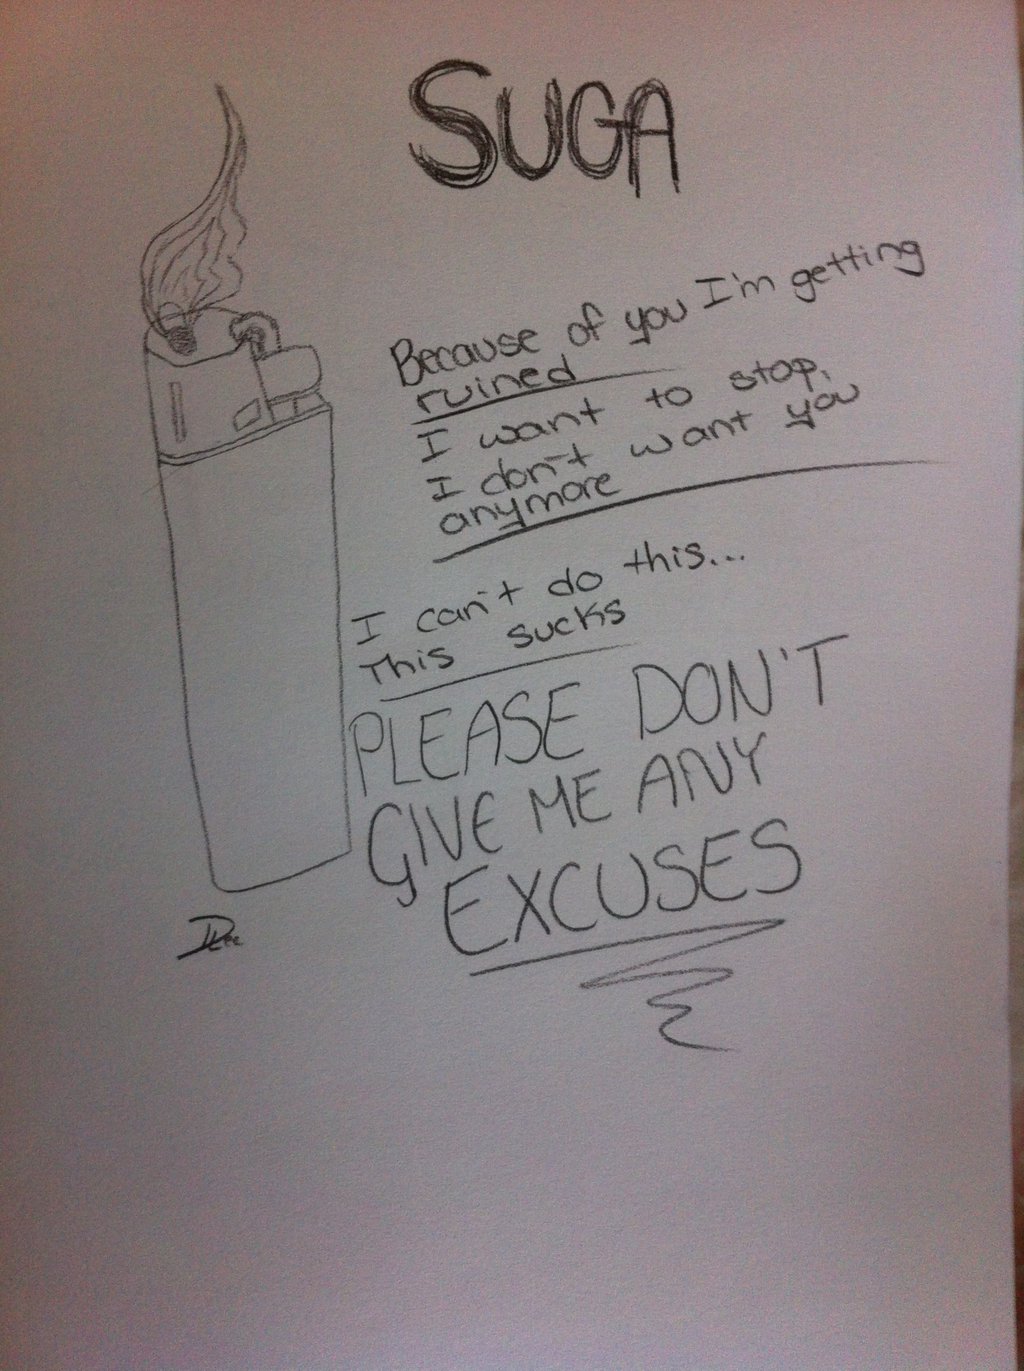 SUGA
Because of you I'm getting
ruined
I want to stop.
I don't want you
anymore
I can't do this...
This sucks
PLEASE DON'T
GIVE ME ANY
EXCUSES